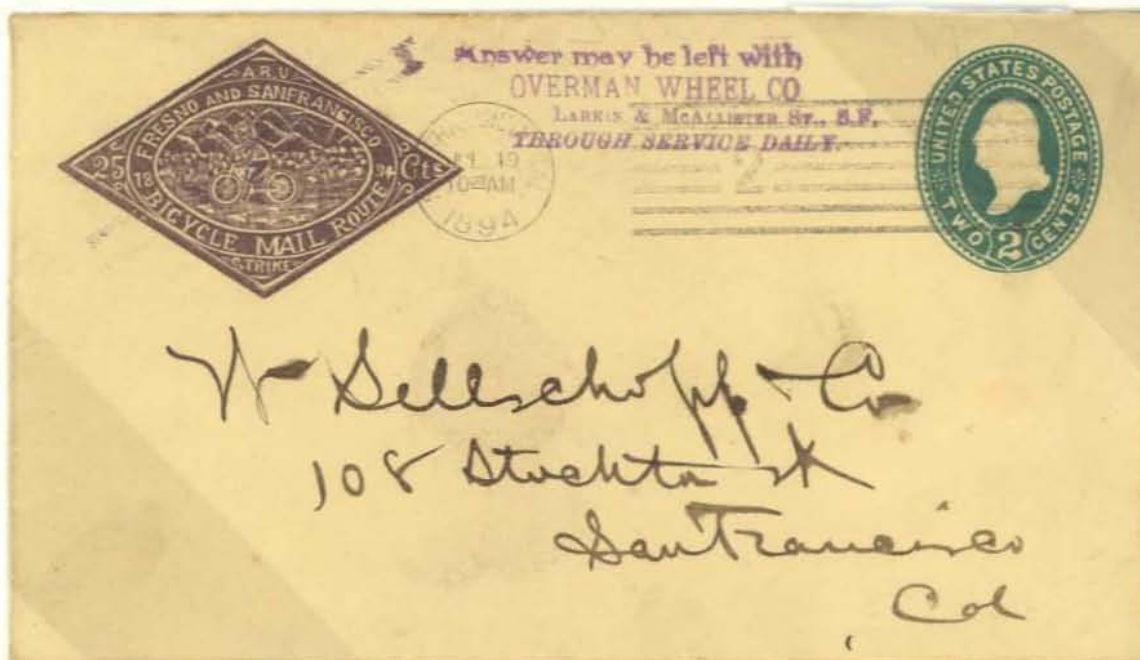 A.R.U.
FRESNO AND SANFRANCISCO
25 Cts
18 94
BICYCLE MAIL ROUTE
STRIKE
Answer may be left with
OVERMAN WHEEL CO
LARKIN & MCALLISTER ST., S.F.
THROUGH SERVICE DAILY.
19
10 AM
1894
UNITED STATES POSTAGE
TWO 2 CENTS
W Sellschopp & Co
108 Stockton St
San Francisco
Cal